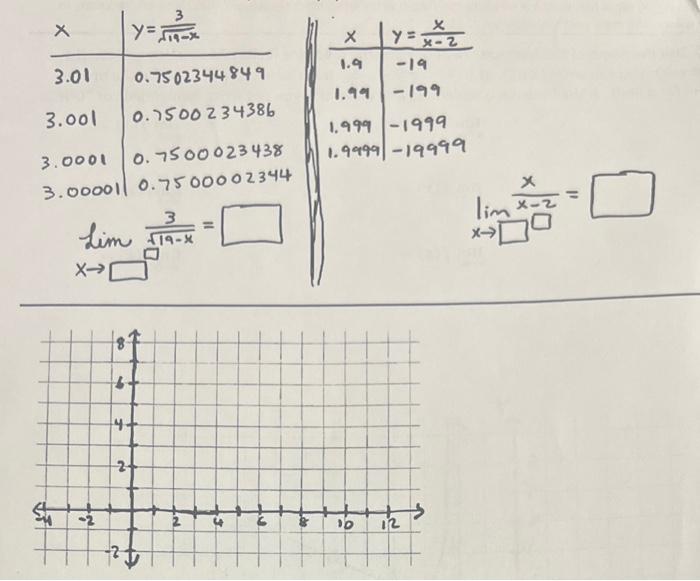 x | y = 3/√(19-x)
3.01 | 0.7502344849
3.001 | 0.7500234386
3.0001 | 0.7500023438
3.00001 | 0.7500002344
Lim 3/√(19-x) = □
x→□ □
x | y = x/(x-2)
1.9 | -19
1.99 | -199
1.999 | -1999
1.9999 | -19999
lim x/(x-2) = □
x→□ □
8
6
4
2
-4 -2 2 4 6 8 10 12
-2